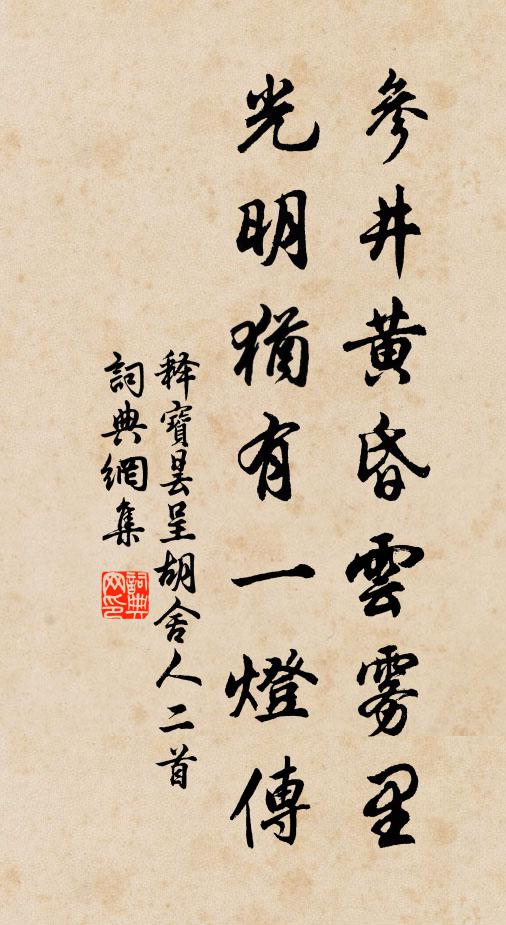 參井黃昏雲雾里
光明猶有一燈傳
释寶曇呈胡舍人二首
詞典網集
詞典
网印